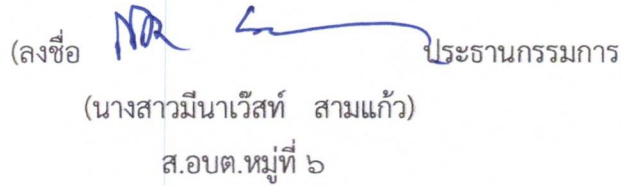 (ลงชื่อ ประธานกรรมการ
(นางสาวมีนาเว๊สท์ สามแก้ว)
ส.อบต.หมู่ที่ ๖